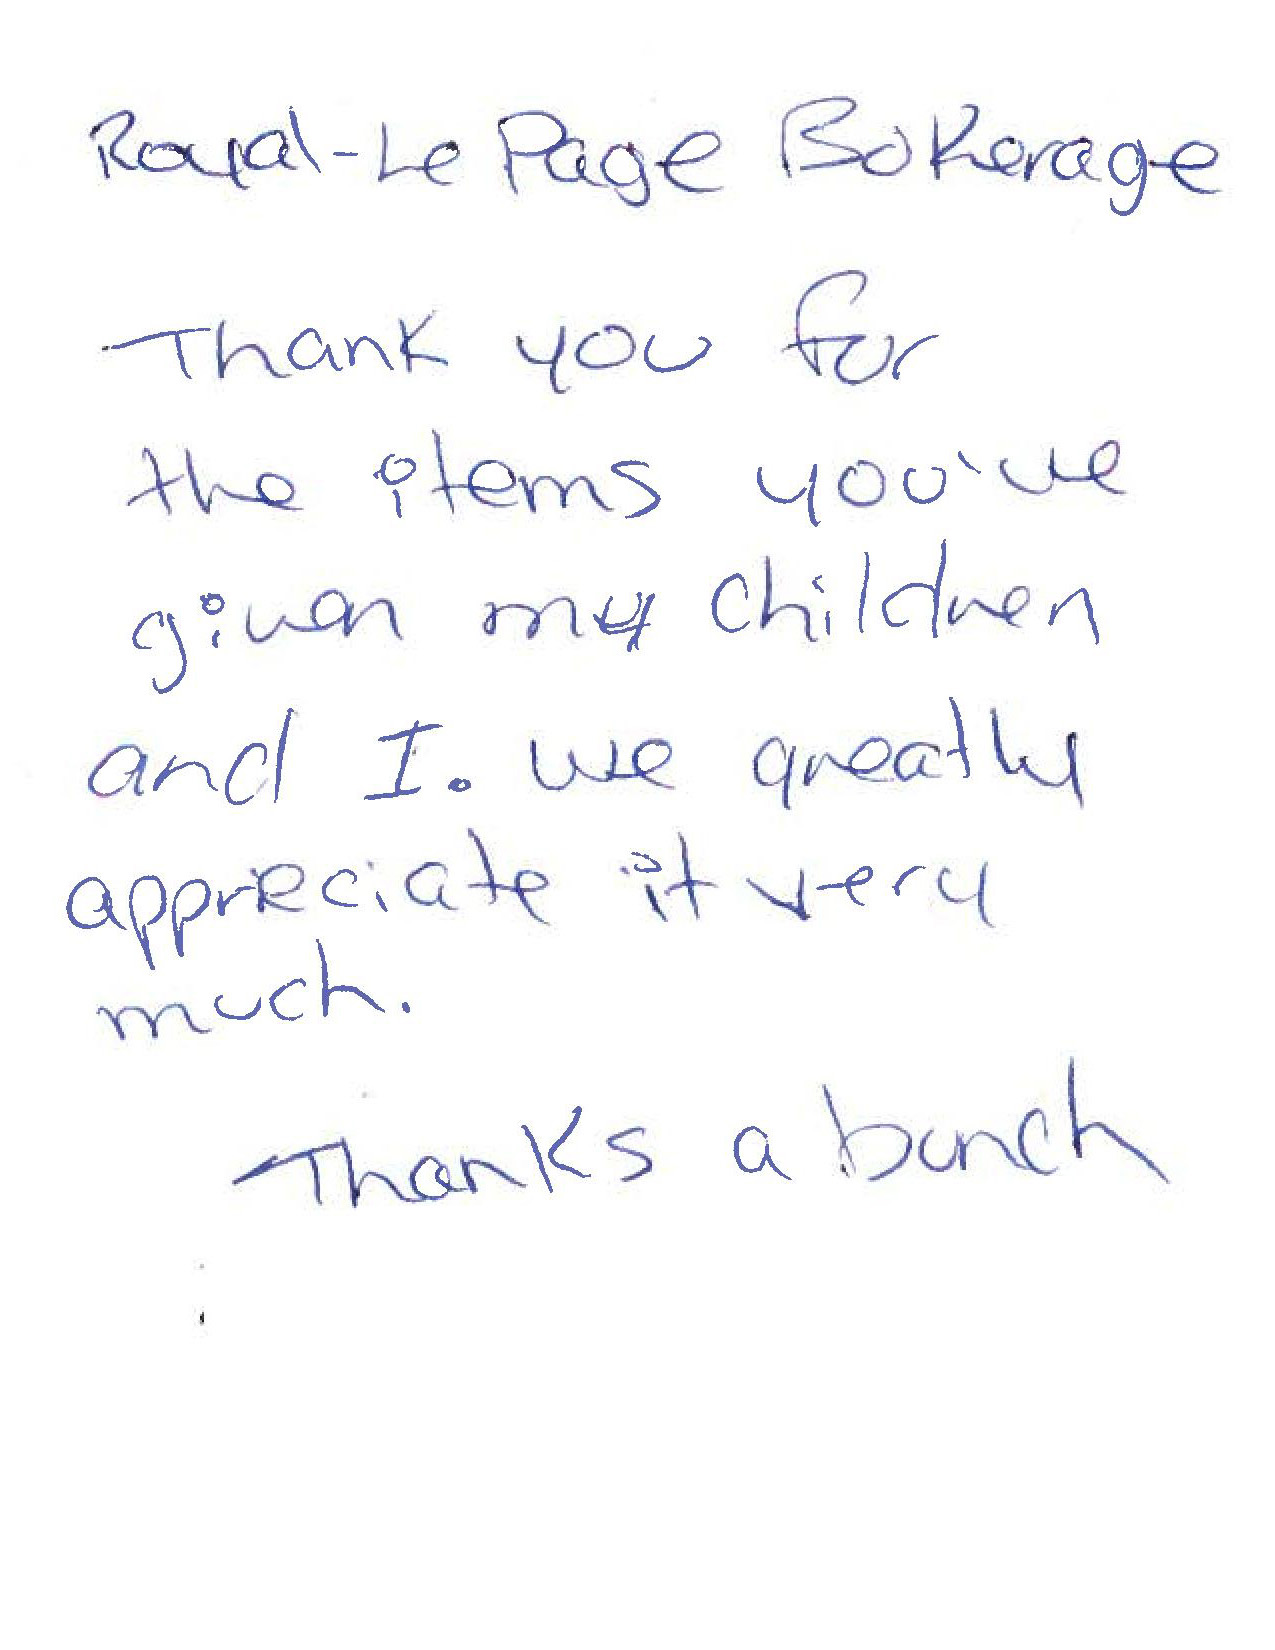 Royal-Le Page Bokerage
Thank you for
the items you've
given my children
and I. we greatly
appreciate it very
much.
Thanks a bunch